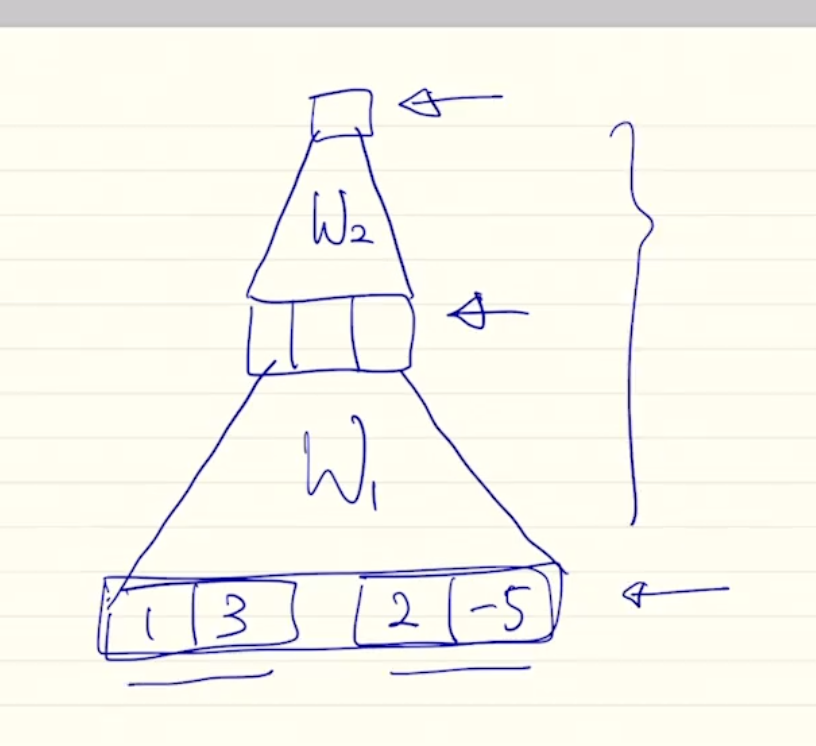 W2
W1
1 3 2 -5